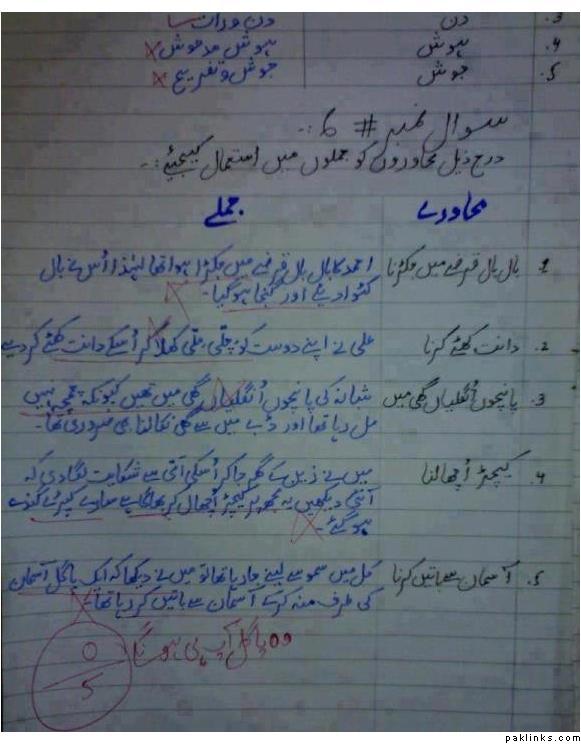 3. دن دن ورات
4. ہوش ہوش مدہوش
5. جوش جوش و تفریح
سوال نمبر # 6 :-
درج ذیل محاوروں کو جملوں میں استعمال کیجیئے :-
محاورے جملے
1. بال بال قرضے میں جکڑنا احمد کا بال بال قرضے میں جکڑا ہوا تھا لہٰذا اُس نے بال
کٹوا دیئے اور گنجا ہو گیا۔
2. دانت کھٹے کرنا علی نے اپنے دوست کو املی کھلا کر اُسکے دانت کھٹے کر دیے
3. پانچوں اُنگلیاں گھی میں شبانہ کی پانچوں اُنگلیاں گھی میں تھیں کیونکہ چمچ نہیں
مل رہا تھا اور ڈبے میں سے گھی نکالنا بھی ضروری تھا۔
4. کیچڑ اُچھالنا میں نے زین کے گھر جا کر اُسکی آنٹی سے شکایت لگا دی کہ
آنٹی دیکھیں یہ مجھ پر کیچڑ اُچھال کر بھاگا ہے سارے کپڑے گندے
ہو گئے
5. آسمان سے باتیں کرنا کل میں سموسے لینے جا رہا تھا تو میں نے دیکھا کہ ایک پاگل آسمان
کی طرف منہ کر کے آسمان سے باتیں کر رہا تھا۔
وہ پاگل آپ ہی ہو نگے
0
5
paklinks.com